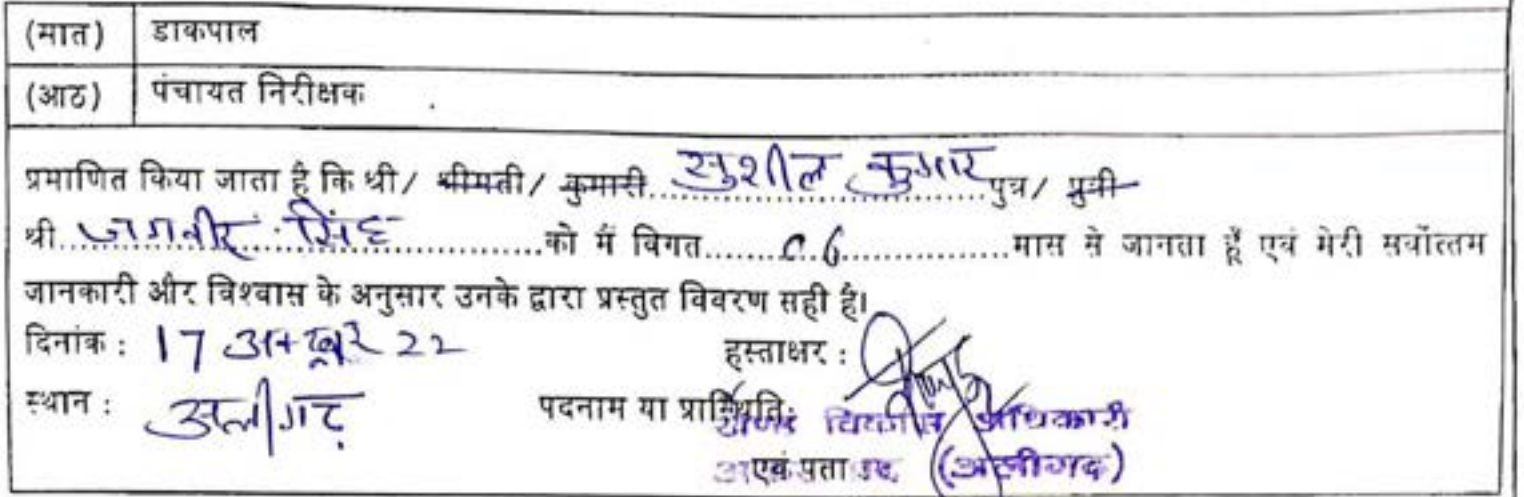 (सात) डाकपाल
(आठ) पंचायत निरीक्षक
प्रमाणित किया जाता है कि श्री/ श्रीमती/ कुमारी..सुशील कुमार..पुत्र/ पुत्री
श्री..जगवीर सिंह..को मैं विगत..06..मास से जानता हूँ एवं मेरी सर्वोत्तम
जानकारी और विश्वास के अनुसार उनके द्वारा प्रस्तुत विवरण सही है।
दिनांक : 17 अक्टूबर 22 हस्ताक्षर :
स्थान : अलीगढ़ पदनाम या प्रास्थिति: विकास अधिकारी
एवं पता (अलीगढ़)